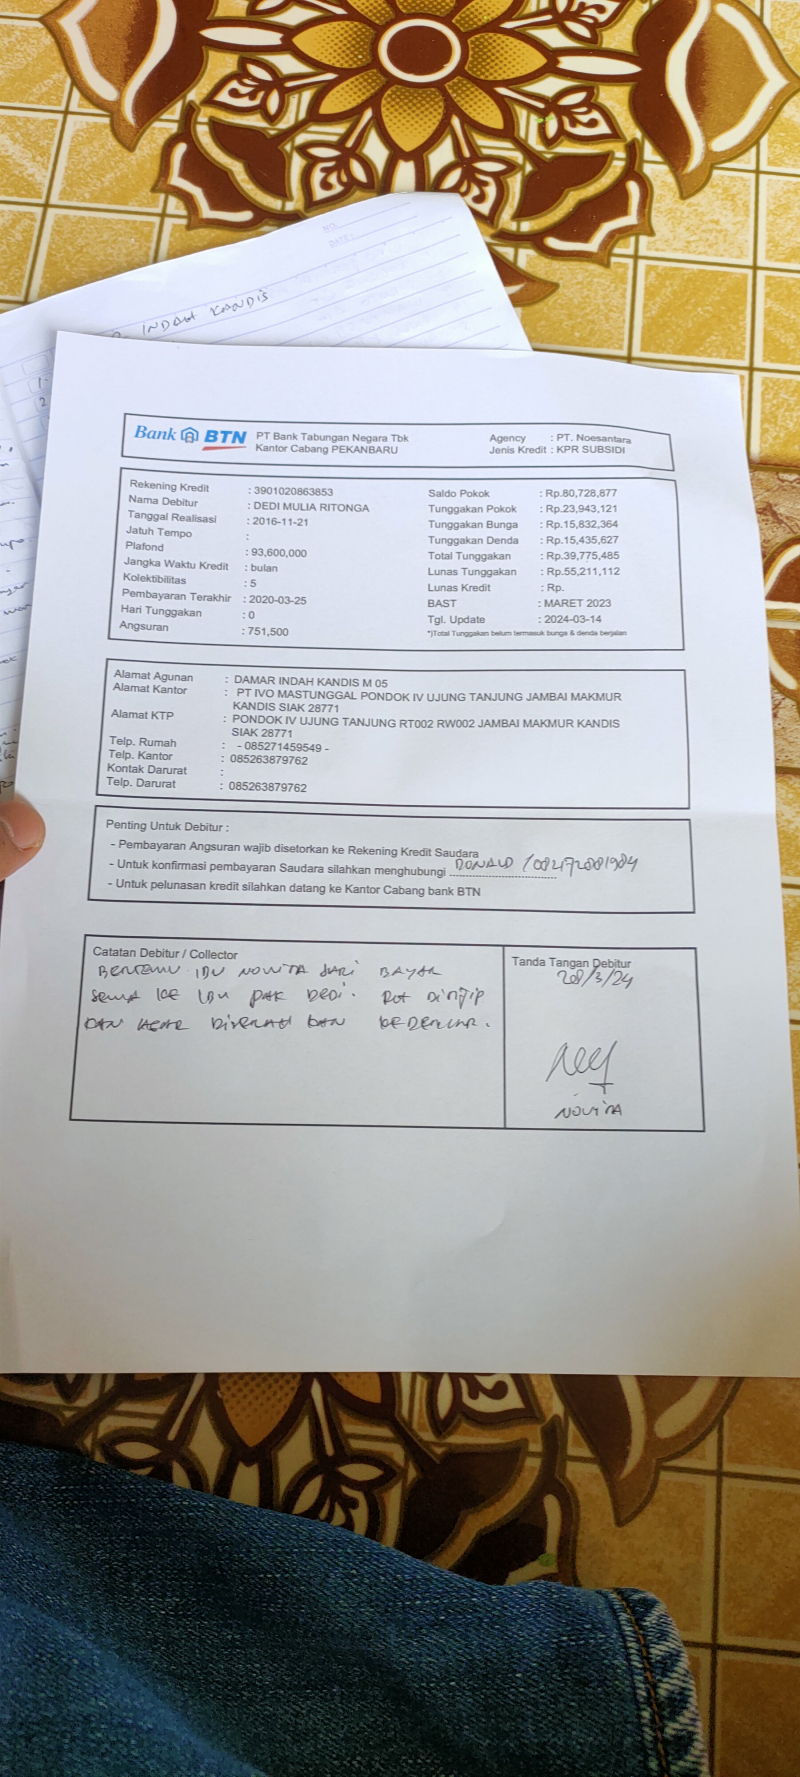 NO.
DATE:
INDAH KANDIS
1.
2
Bank BTN
PT Bank Tabungan Negara Tbk
Kantor Cabang PEKANBARU
Agency : PT. Noesantara
Jenis Kredit : KPR SUBSIDI
Rekening Kredit : 3901020863853
Nama Debitur : DEDI MULIA RITONGA
Tanggal Realisasi : 2016-11-21
Jatuh Tempo :
Plafond : 93,600,000
Jangka Waktu Kredit : bulan
Kolektibilitas : 5
Pembayaran Terakhir : 2020-03-25
Hari Tunggakan : 0
Angsuran : 751,500
Saldo Pokok : Rp.80,728,877
Tunggakan Pokok : Rp.23,943,121
Tunggakan Bunga : Rp.15,832,364
Tunggakan Denda : Rp.15,435,627
Total Tunggakan : Rp.39,775,485
Lunas Tunggakan : Rp.55,211,112
Lunas Kredit : Rp.
BAST : MARET 2023
Tgl. Update : 2024-03-14
*)Total Tunggakan belum termasuk bunga & denda berjalan
Alamat Agunan : DAMAR INDAH KANDIS M 05
Alamat Kantor : PT IVO MASTUNGGAL PONDOK IV UJUNG TANJUNG JAMBAI MAKMUR
KANDIS SIAK 28771
Alamat KTP : PONDOK IV UJUNG TANJUNG RT002 RW002 JAMBAI MAKMUR KANDIS
SIAK 28771
Telp. Rumah : - 085271459549 -
Telp. Kantor : 085263879762
Kontak Darurat :
Telp. Darurat : 085263879762
Penting Untuk Debitur :
- Pembayaran Angsuran wajib disetorkan ke Rekening Kredit Saudara
- Untuk konfirmasi pembayaran Saudara silahkan menghubungi DONALD / 082172081984
- Untuk pelunasan kredit silahkan datang ke Kantor Cabang bank BTN
Catatan Debitur / Collector
BERTEMU IBU NOVITA SARI BAYAR
SEWA KE IBU PAK DEDI.
DAN AGAR DISERAHKAN
Tanda Tangan Debitur
28/3/24
NOVITA